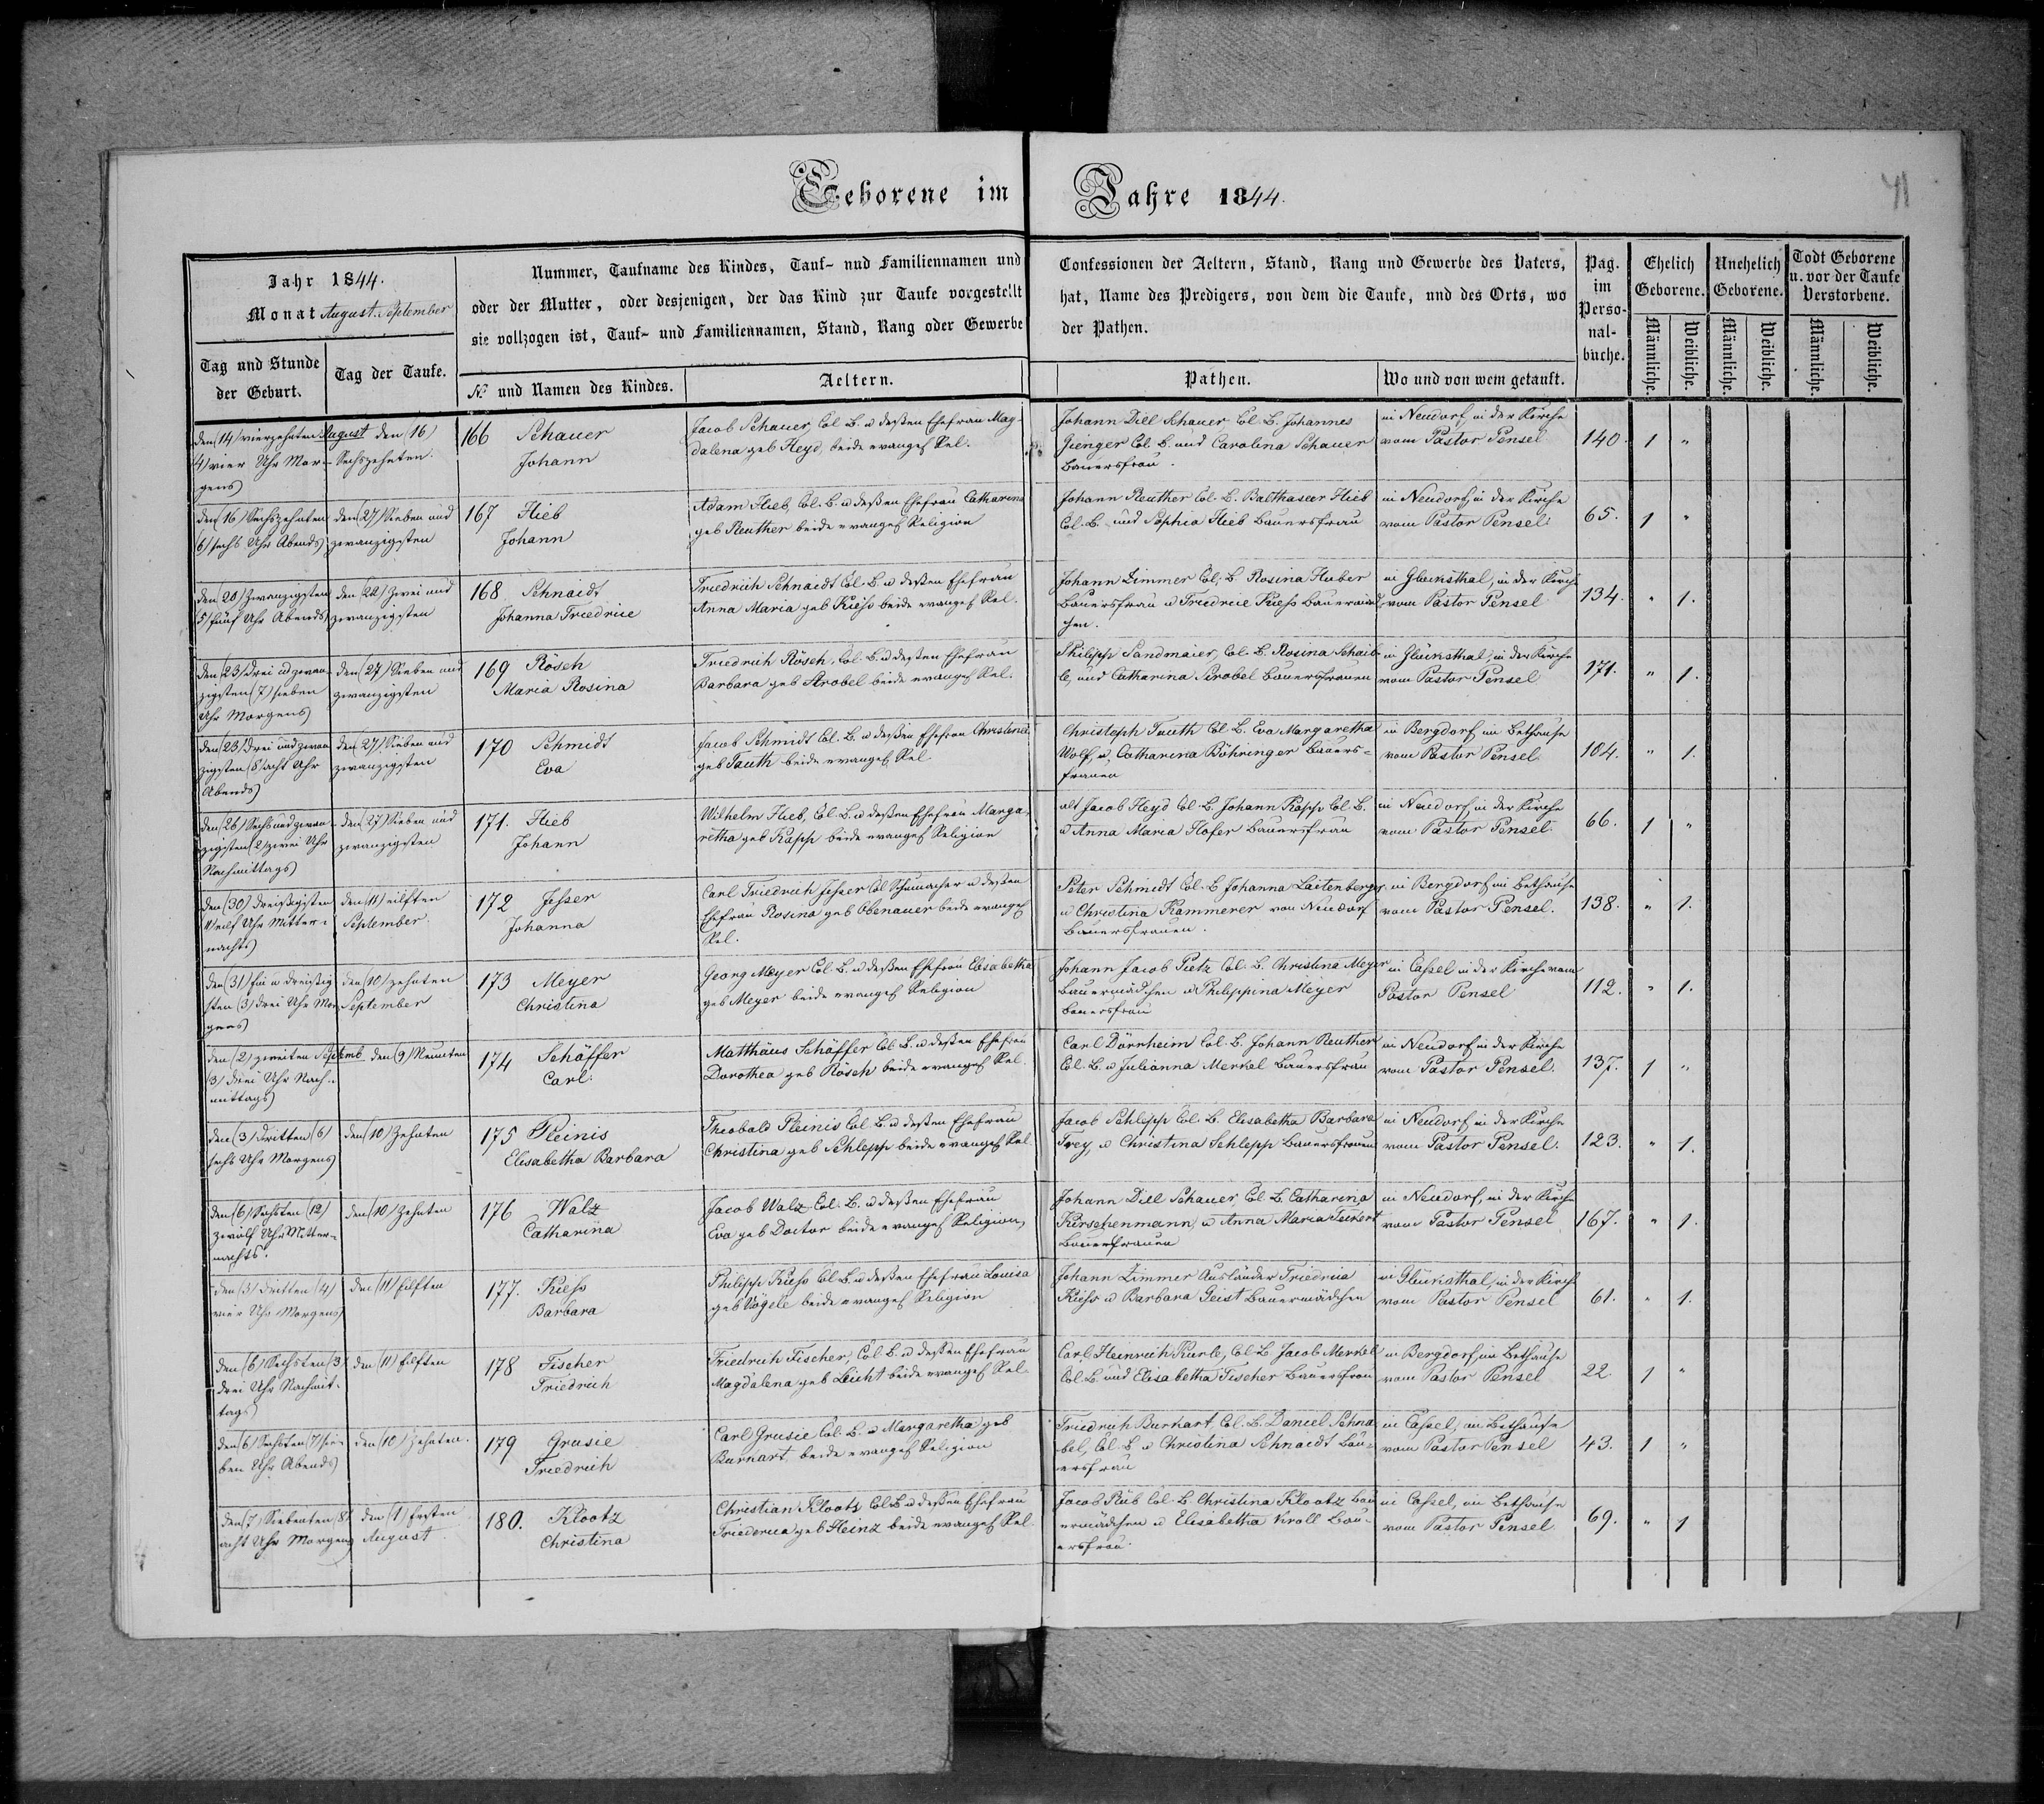 Geborene im Jahre 1844.
71
Jahr 1844.
Monat August. September
Tag und Stunde
der Geburt.
Tag der Taufe.
Nummer, Taufname des Kindes, Tauf- und Familiennamen und
oder der Mutter, oder desjenigen, der das Kind zur Taufe vorgestellt
sie vollzogen ist, Tauf- und Familiennamen, Stand, Rang oder Gewerbe
No. und Namen des Kindes.
Aeltern.
Confessionen der Aeltern, Stand, Rang und Gewerbe des Vaters,
hat, Name des Predigers, von dem die Taufe, und des Orts, wo
der Pathen.
Pathen.
Wo und von wem getauft.
Pag.
im
Perso-
nal-
buche.
Ehelich
Geborene.
Unehelich
Geborene.
Todt Geborene
u. vor der Taufe
Verstorbene.
Männliche.
Weibliche.
Männliche.
Weibliche.
Männliche.
Weibliche.
den (14) vierzehnten August
(4) vier Uhr Mor-
gens)
den (16)
Sechszehnten.
166 Schauer
Johann
Jacob Schauer, Col. B. u deßen Ehefrau Mag-
dalena geb Heyd, beide evangel Rel.
Johann Dill Schauer, Col. B. Johannes
Gienger Col. B. und Carolina Schauer
Bauersfrau.
in Neudorf in der Kirche
vom Pastor Pensel
140. 1 "
den (16) Sechszehnten
6) sechs Uhr Abends)
den (27) Sieben und
zwanzigsten
167 Hieb
Johann
Adam Hieb, Col. B. u deßen Ehefrau Catharina
geb Reuther beide evangel Religion
Johann Reuther Col. B. Balthaser Hieb
Col. B. und Sophia Hieb Bauersfrau
in Neudorf, in der Kirche
vom Pastor Pensel.
65. 1 "
den (20) Zwanzigsten
(5) fünf Uhr Abends)
den (22) Zwei und
zwanzigsten
168 Schnaidt
Johanna Friedrice
Friedrich Schnaidt Col. B. u deßen Ehefrau
Anna Maria geb Kiess beide evangel Rel.
Johann Zimmer Col. B. Rosina Huber
Bauersfrau u Friedrice Kiess Bauermäd
chen.
in Glücksthal, in der Kirche
vom Pastor Pensel
134. " 1.
den (23) Drei und zwan-
zigsten (7) sieben
Uhr Morgens)
den (27) Sieben und
zwanzigsten
169 Rösch
Maria Rosina
Friedrich Rösch, Col. B. u deßen Ehefrau
Barbara geb Strobel beide evangel Rel.
Philipp Sandmaier, Col. B. Rosina Schaib-
le, und Catharina Strobel Bauersfrauen
in Glücksthal, in der Kirche
vom Pastor Pensel
171. " 1.
den (23) Drei und zwan
zigsten (8) acht Uhr
Abends)
den (27) Sieben und
zwanzigsten
170 Schmidt
Eva
Jacob Schmidt Col. B. u deßen Ehefrau Christina
geb Fauth beide evangel Rel.
Christoph Fauth Col. B. Eva Margaretha
Wolf, u. Catharina Böhringer Bauers-
frauen
in Bergdorf im Bethause
vom Pastor Pensel
104. " 1.
den (26) Sechs und zwan
zigsten (2) zwei Uhr
Nachmittags)
den (27) Sieben und
zwanzigsten
171. Hieb
Johann
Wilhelm Hieb, Col. B. u deßen Ehefrau Marga-
retha geb Rapp beide evangel Religion
alt Jacob Heyd Col. B. Johann Rapp Col. B.
u Anna Maria Hofer Bauersfrau
in Neudorf, in der Kirche
vom Pastor Pensel
66. 1 "
den (30) Dreißigsten
11) eilf Uhr Mitter-
nachts)
den (11) eilften
September.
172 Jesser
Johanna
Carl Friedrich Jesser Col. Schumacher u deßen
Ehefrau Rosina geb Obenauer beide evangel
Rel.
Peter Schmidt Col. B. Johanna Laitenberger
u Christina Kammerer von Neudorf
Bauersfrauen.
in Bergdorf im Bethause
vom Pastor Pensel.
138. " 1.
den (31) Ein u dreißig
sten (3) drei Uhr Mor
gens)
den (10) zehnten
September
173 Meyer
Christina
Georg Meyer Col. B. u deßen Ehefrau Elisabetha
geb Meyer beide evangel Religion
Johann Jacob Pietz Col. B. Christina Meyer
Bauermädchen u Philippina Meyer
Bauersfrau
in Cassel in der Kirche vom
Pastor Pensel
112. " 1.
den (2) zweiten Septemb.
(3) drei Uhr Nach-
mittags)
den (9) Neunten
174 Schäffer
Carl.
Matthäus Schäffer Col. B. u deßen Ehefrau
Dorothea geb Rösch beide evangel Rel.
Carl Dörrheim Col. B. Johann Reuther
Col. B. u Julianna Merkel Bauersfrau
in Neudorf in der Kirche
vom Pastor Pensel.
137. 1 "
den (3) dritten (6)
sechs Uhr Morgens)
den (10) Zehnten
175 Pleinis
Elisabetha Barbara
Theobald Pleinis Col. B. u deßen Ehefrau
Christina geb Schlepp beide evangel Rel
Jacob Schlepp Col. B. Elisabetha Barbara
Frey, u Christina Schlepp Bauersfrauen
in Neudorf in der Kirche
vom Pastor Pensel.
123. " 1.
den (6) Sechsten (12)
zwölf Uhr Mitter-
nachts.
den (10) Zehnten
176 Walz
Catharina
Jacob Walz Col. B. u deßen Ehefrau
Eva geb Doctor beide evangel Religion
Johann Dill Schauer, Col. B. Catharina
Kirschenmann, u Anna Maria Teikert
Bauersfrauen
in Neudorf, in der Kirche
vom Pastor Pensel
167. " 1.
den (3) dritten (4)
vier Uhr Morgens)
den (11) Eilften
177. Kiess
Barbara
Philipp Kiess Col. B. u deßen Ehefrau Louisa
geb Vögele beide evangel Religion
Johann Zimmer Ausländer Friedricia
Kiess u Barbara Geist Bauermädchen
in Glücksthal, in der Kirche
vom Pastor Pensel
61. " 1.
den (6) Sechsten (3)
drei Uhr Nachmit-
tags)
den (11) Eilften
178 Fischer
Friedrich
Friedrich Fischer, Col. B. u deßen Ehefrau
Magdalena geb Leicht beide evangel Rel.
Carl Heinrich Kurle, Col. B. Jacob Merkel
Col. B. und Elisabetha Fischer Bauersfrau
in Bergdorf, im Bethause
vom Pastor Pensel
22. 1 "
den (6) Sechsten (7) sie-
ben Uhr Abends)
den (10) Zehnten.
179 Grusie
Friedrich
Carl Grusie Col. B. u Margaretha geb
Burkart, beide evangel Religion
Friedrich Burkart Col. B. Daniel Schna
bel, Col. B. u Christina Schnaidt Bau-
ersfrau
in Cassel, im Bethause
vom Pastor Pensel
43. 1 "
den (7) Siebenten (8)
acht Uhr Morgens
den (1) Ersten
August
180. Klootz
Christina
Christian Klootz Col. B. u deßen Ehefrau
Friederica geb Heinz beide evangel Rel.
Jacob Rüb Col. B. Christina Klootz Bau
ermädchen u Elisabetha Kroll Bau-
ersfrau.
in Cassel, im Bethause
vom Pastor Pensel
69. " 1